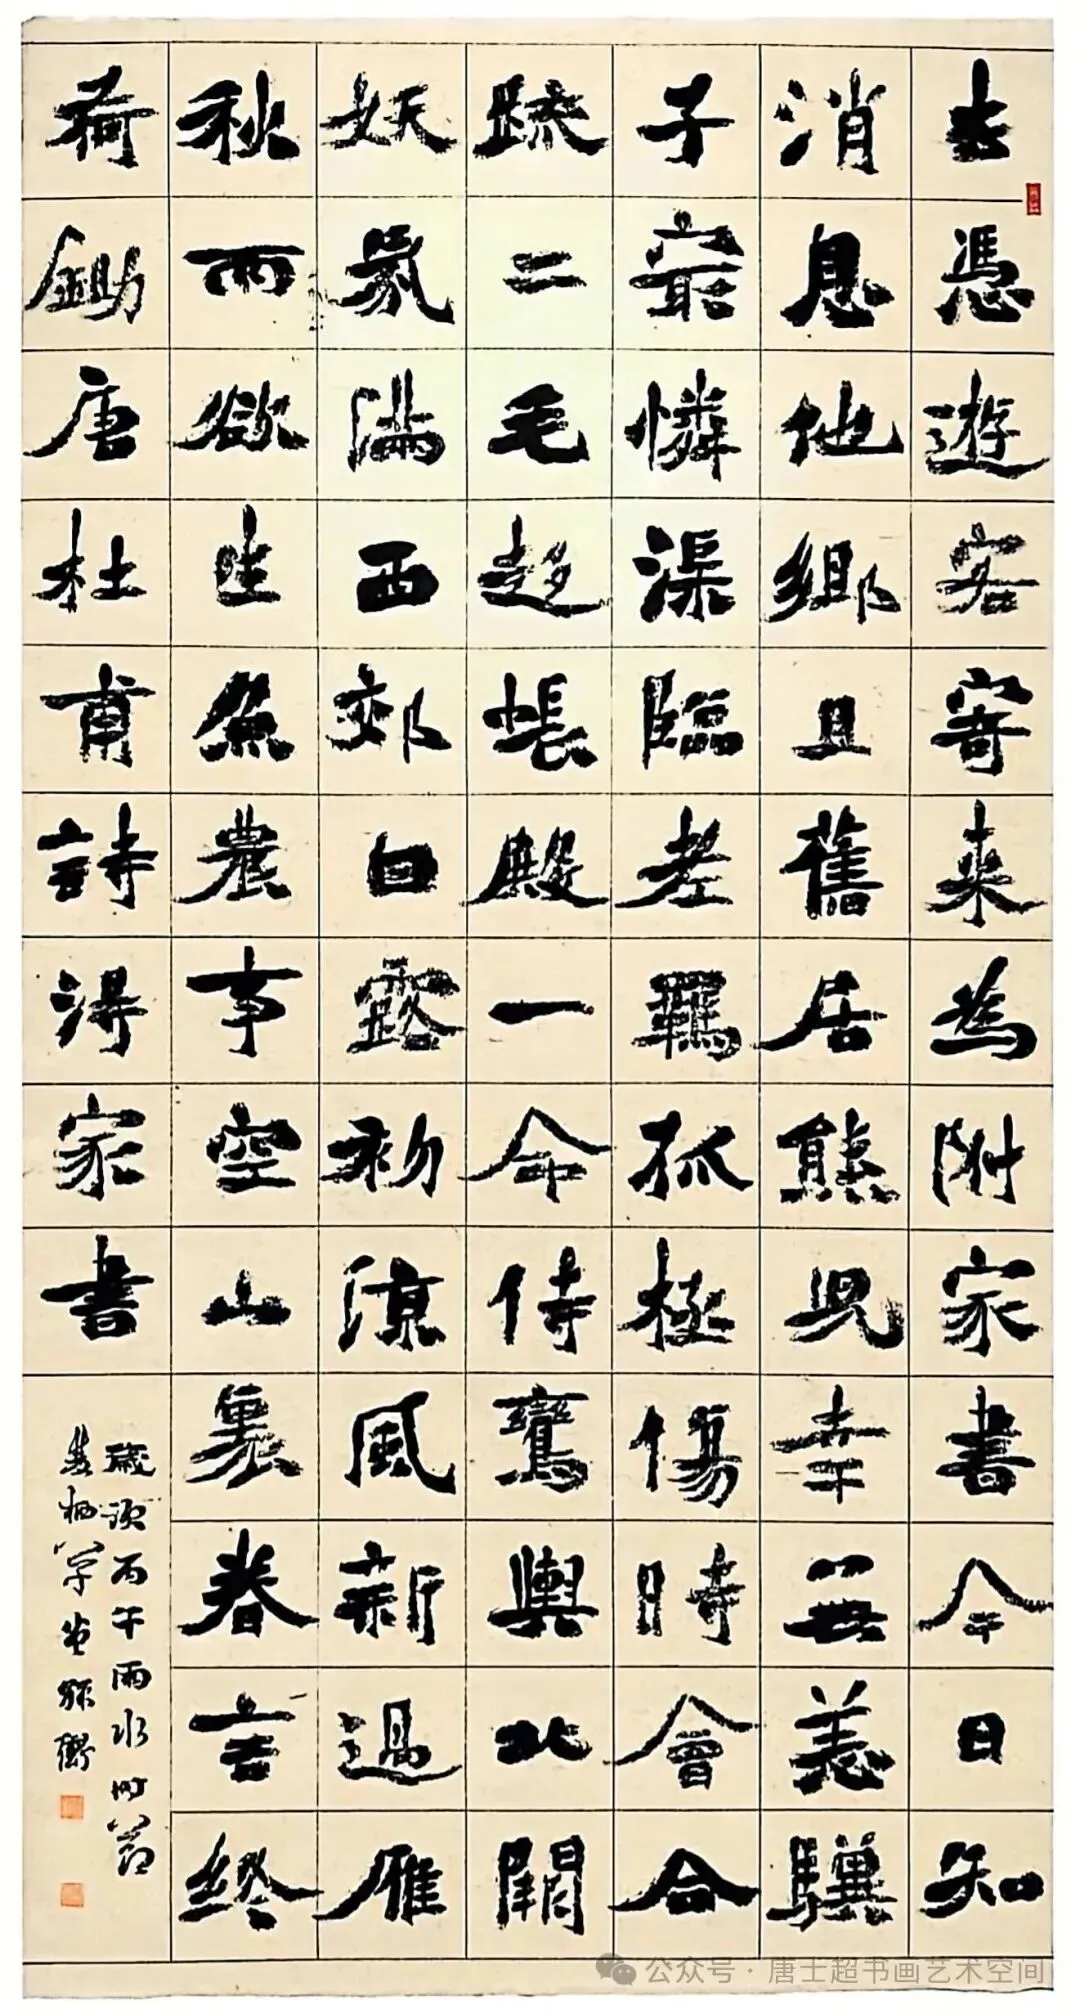 去憑遊客寄来為附家書今日知
消息他鄉且舊居熊兒幸無恙驥
子最憐渠臨老羈孤極傷時會合
踈二毛趍帳殿一命侍鸞輿北闕
妖氛滿西郊白露初涼風新過雁
秋雨欲生魚農事空山裏眷言終
荷鋤唐杜甫詩得家書
歲次丙午雨水時節
草堂
公众号·唐士超书画艺术空间